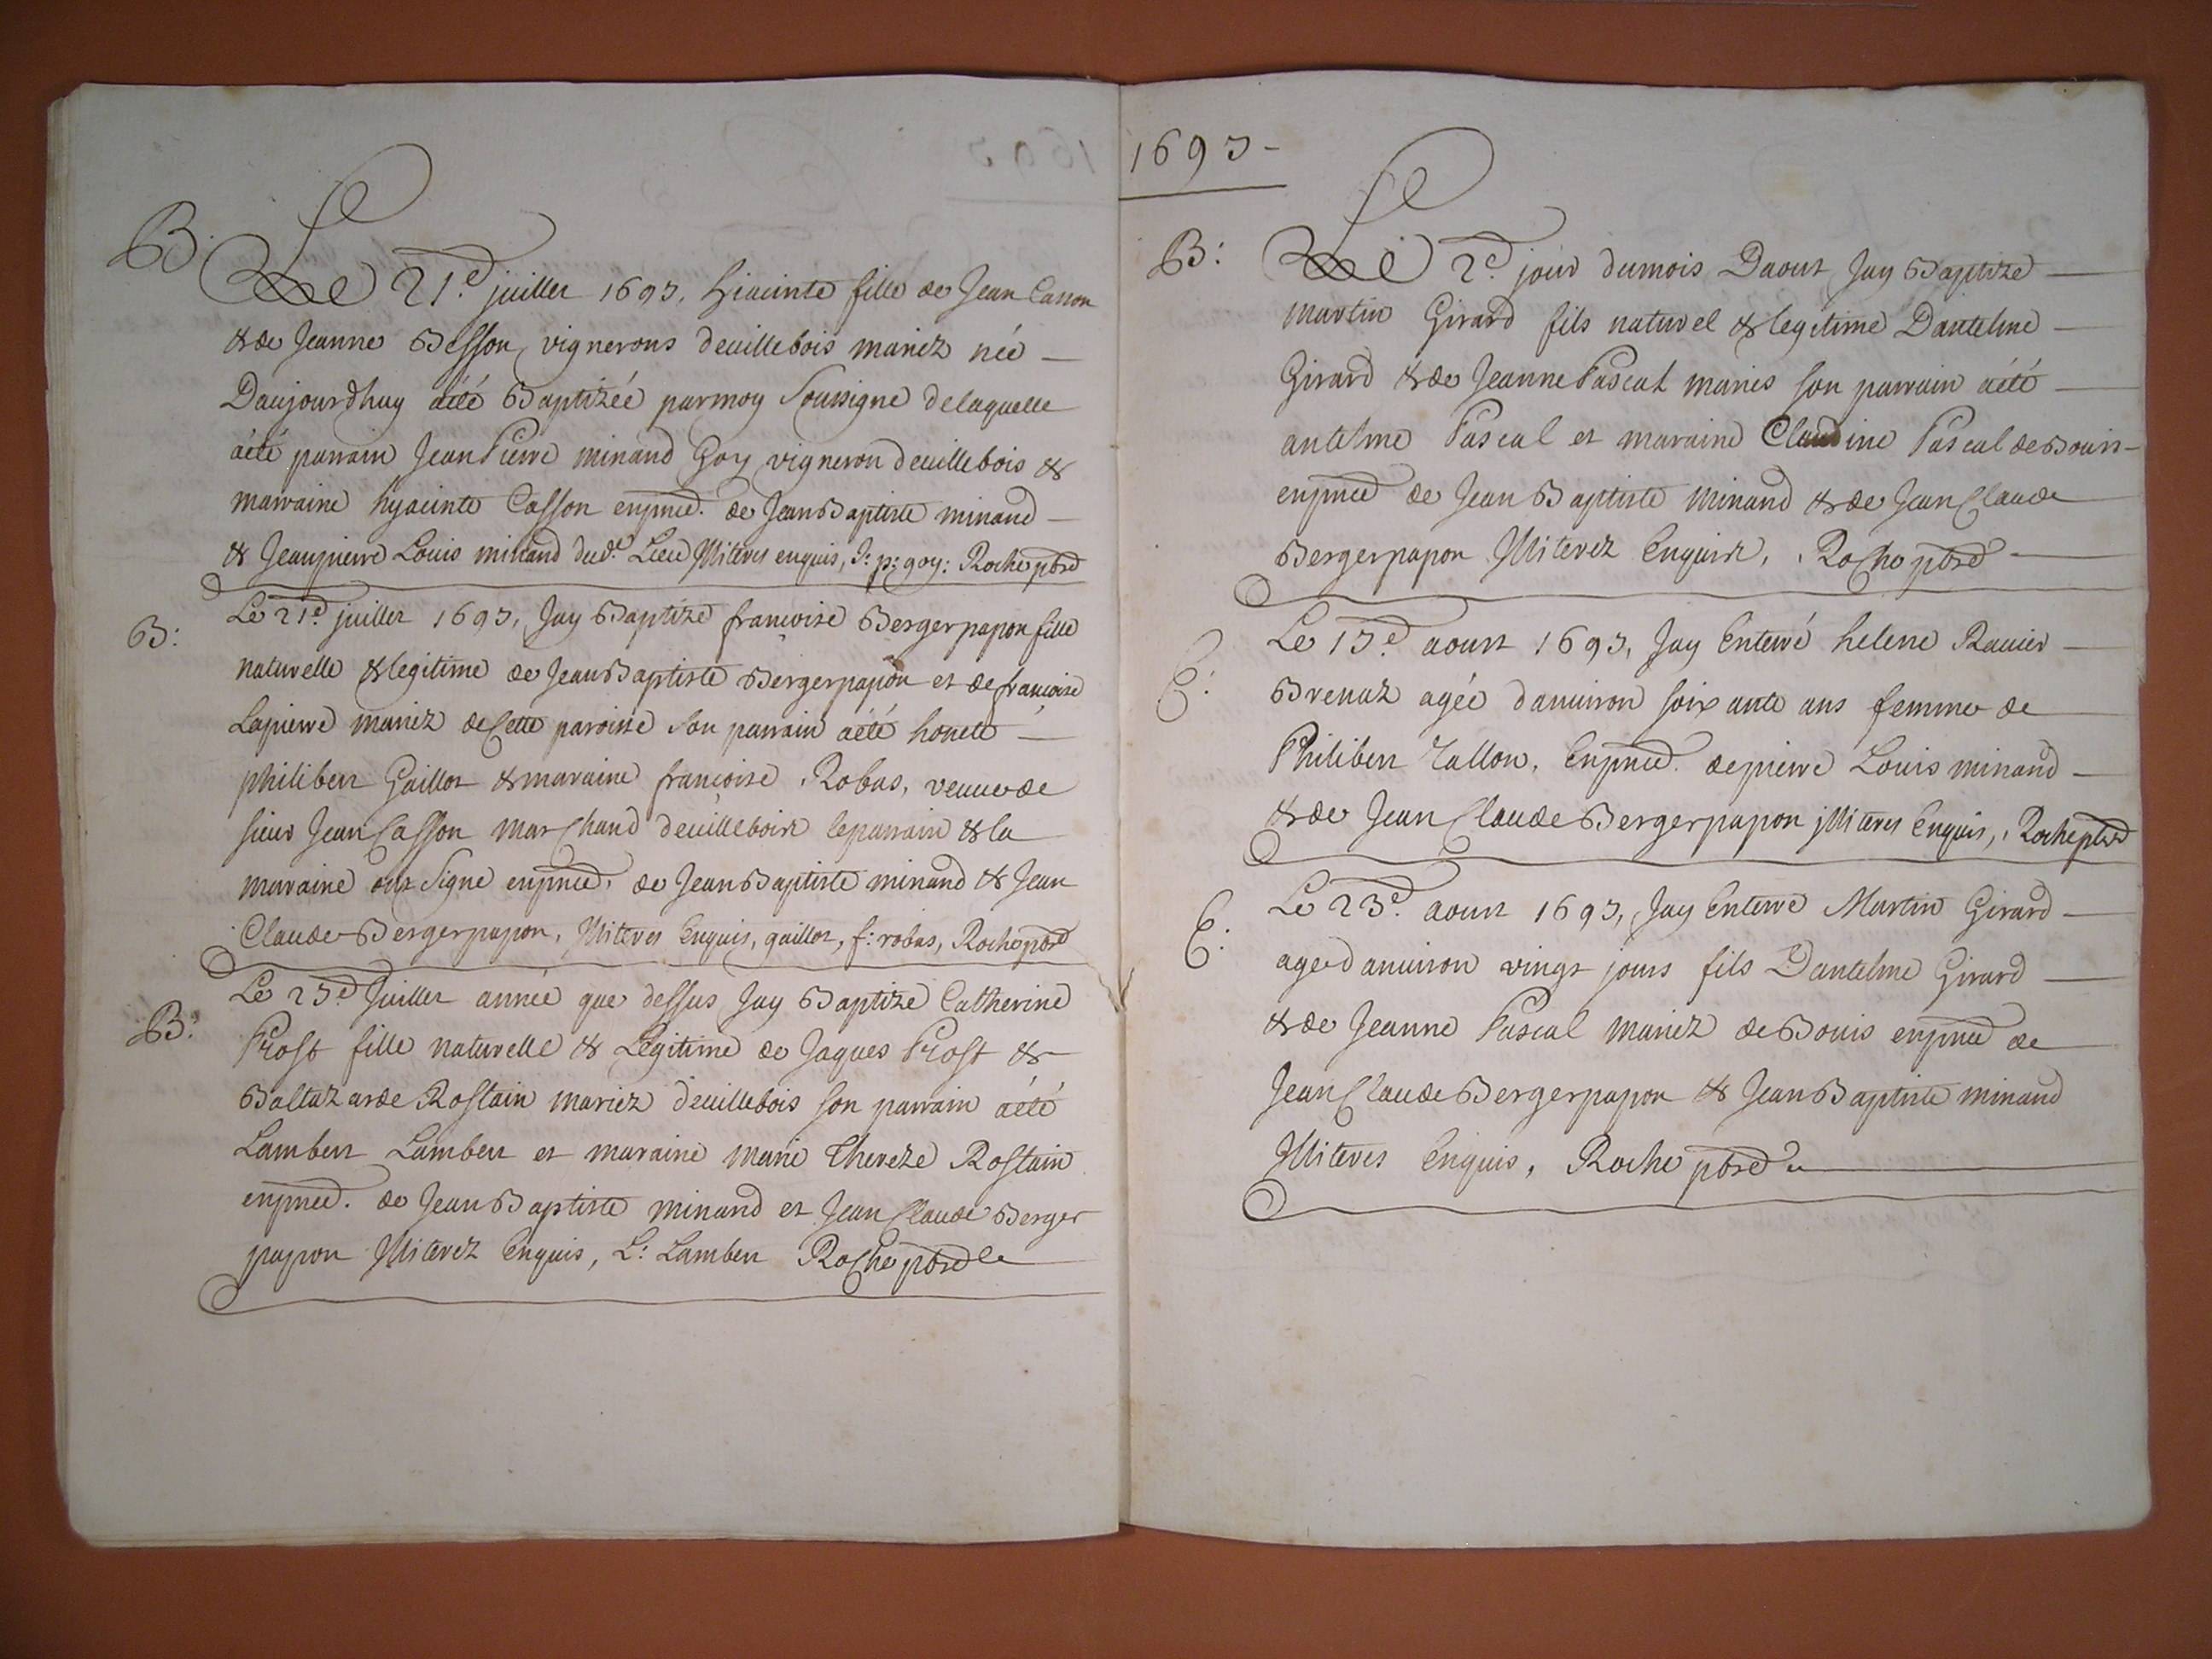 B.
Le 21.e juillet 1693. hiacinte fille de Jean Casson
& de Jeanne Besson, vignerons deuillebois mariez née
Daujourdhuy aété Baptizéé parmoy Soussigne delaquelle
aété parrain Jean Pierre minand Goy vigneron deuillebois &
marraine hyacinte Casson enpnce. de Jean Baptiste minand
& Jeanpierre Louis minand dud.t Lieu Illiteres enquis, J: p: goy: Roche pbre
B:
Le 21e juillet 1693, Jay Baptizé francoise Bergerpapon fille
naturelle & legitime de Jean Baptiste Bergerpapon et de francoise
Lapierre mariez de Cette paroisse son parrain aété honete
philibert Gaillot & maraine francoise Robas, veuue de
sieur Jean Casson marchand deuilleboix le parrain & la
maraine ont Signe enpnce. de Jean Baptiste minand & Jean
Claude Bergerpapon, Illiteres Enquis, gaillot, f: robas, Roche pbre
B:
Le 25e Juillet année que dessus Jay Baptizé Catherine
Prost fille naturelle & Légitime de Jaques Prost &
Baltazarde Rostain mariez deuillebois son parrain aété
Lambert Lambert et maraine marie Thereze Rostain
enpnce. de Jean Baptiste minand et Jean Claude Berger
papon Illiterez Enquis, L: Lambert Roche pbre
1693
B:
Le 2e jour dumois Daoust Jay Baptizé
martin Girard fils naturel & legitime Dantelme
Girard & de Jeanne Pascal maries son parrain aété
antelme Pascal et maraine Claudine Pascal de Bouis
enpnce de Jean Baptiste minand & de Jean Claude
Bergerpapon Illiterez Enquis, Roche pbre
E:
Le 15e aoust 1693, Jay Enterré helene Rauier
Brenaz agée danuiron soixante ans femme de
Philibert Tallon, Enpnce. de pierre Louis minand
& de Jean Claude Bergerpapon jlliteres Enquis, Roche pbre
E:
Le 23e. aoust 1693, Jay Enterré Martin Girard
age danuiron vingt jours fils Dantelme Girard
& de Jeanne Pascal mariez de Bouis enpnce de
Jean Claude Bergerpapon & Jean Baptiste minand
Illiteres Enquis, Roche pbre